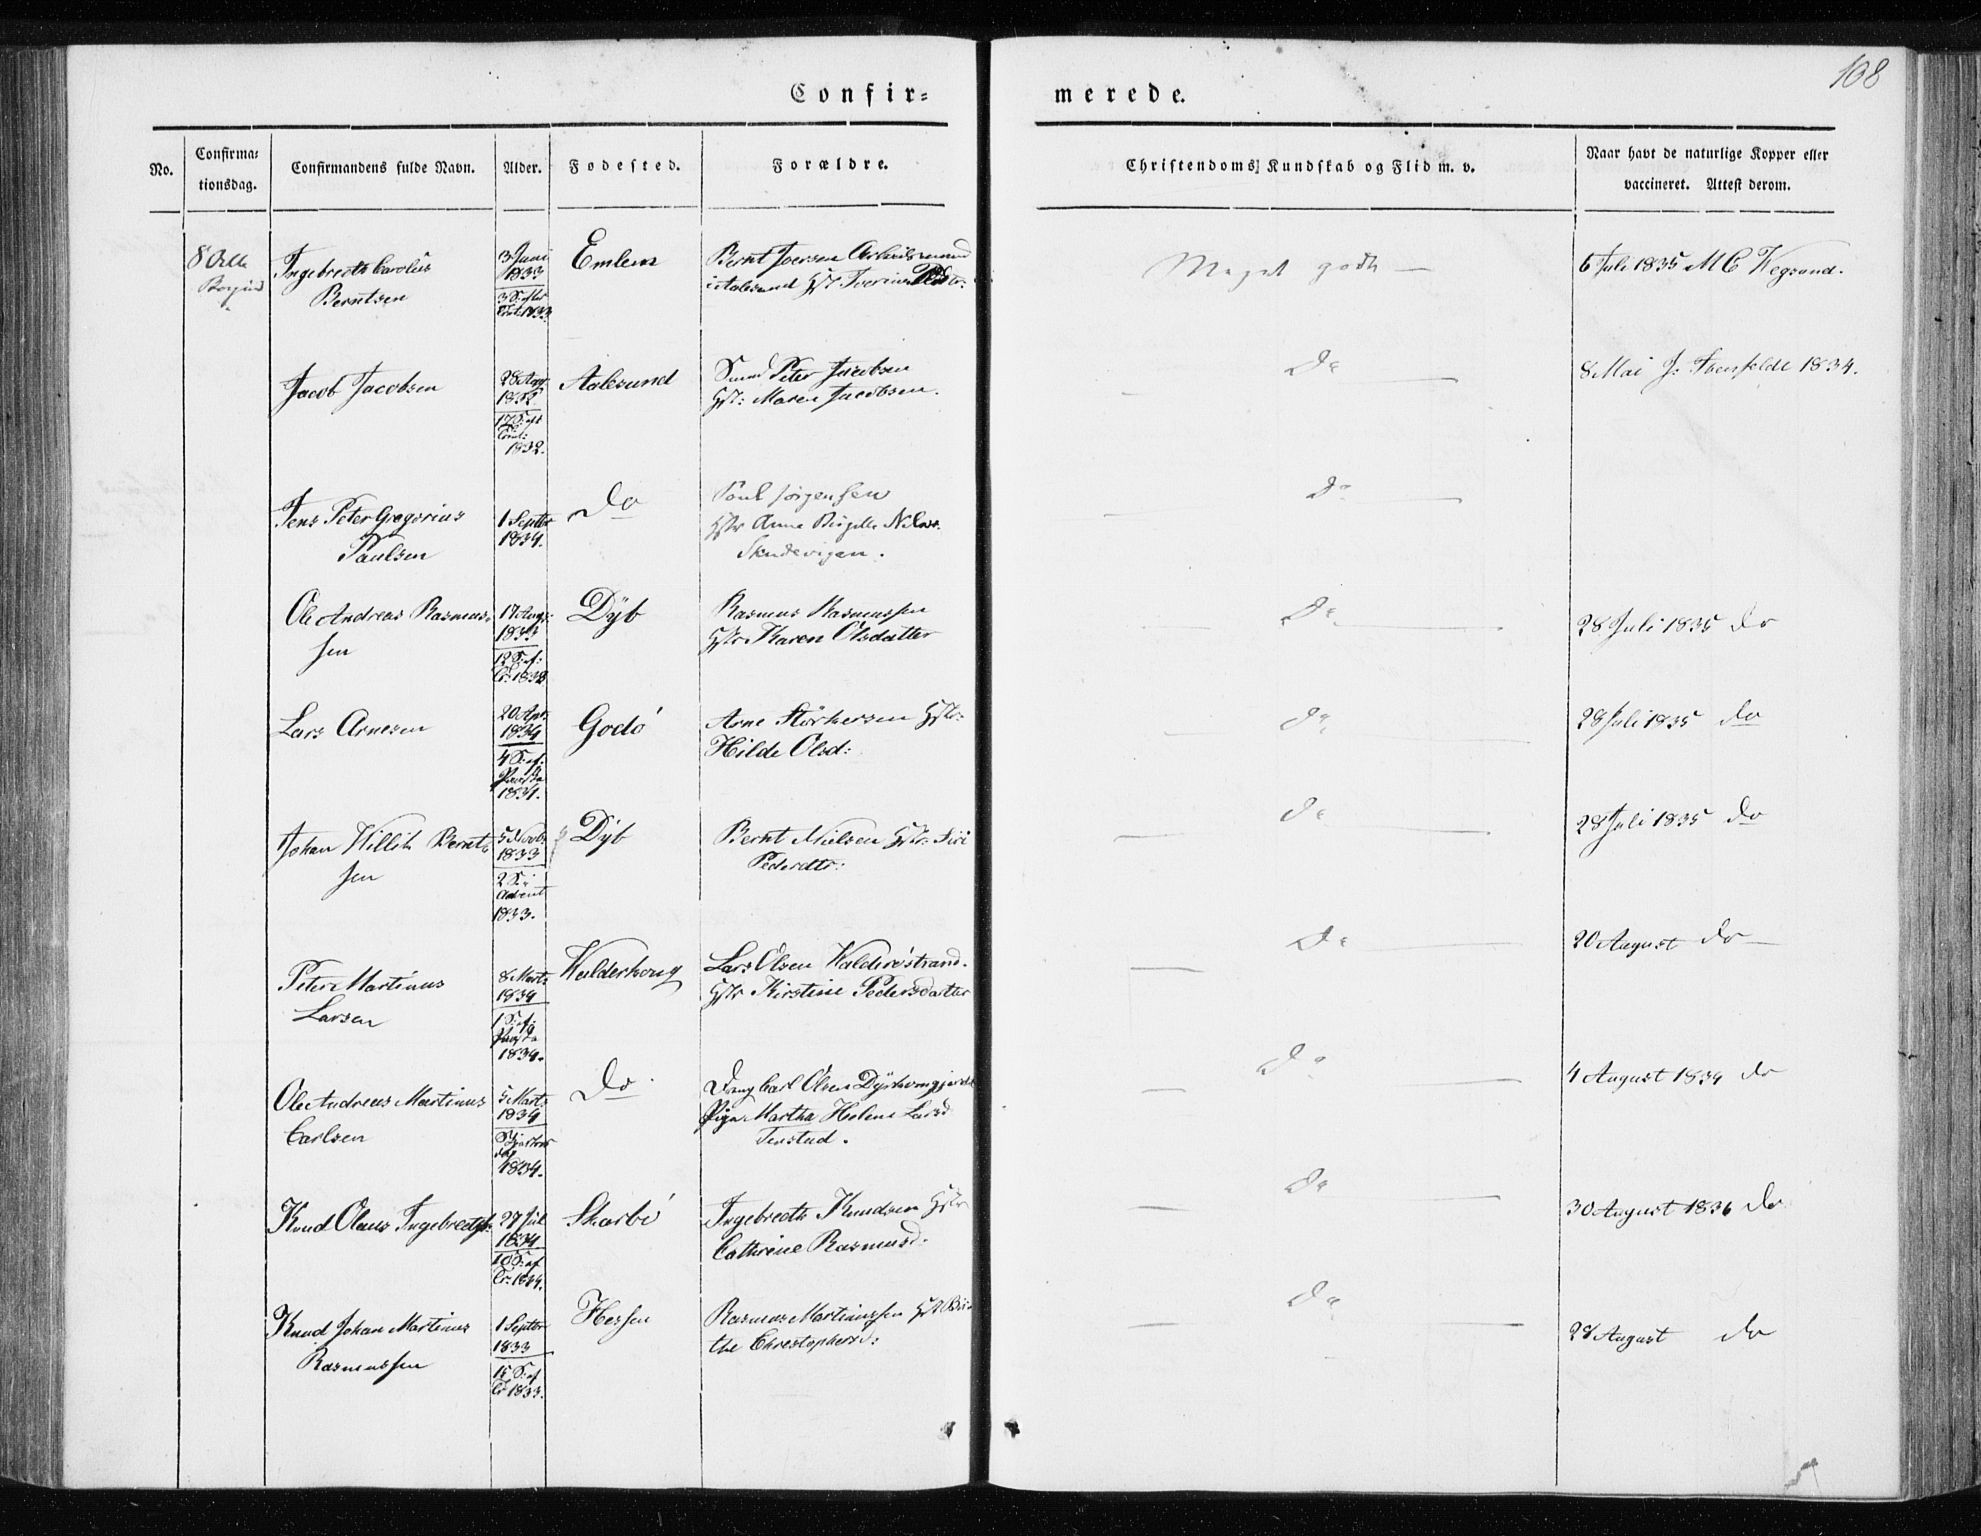 108
Confir=
merede.
No.
Confirma=
tionsdag.
Confirmandens fulde Navn.
Alder.
Fødested.
Forældre.
Christendoms Kundskab og Flid m. v.
Naar havt de naturlige Kopper eller
vaccineret. Attest derom.
8 Octb
Borgund
Ingebregth Carolus
Berntsen
3 Juni
1833
Emlem
Bernt Iversen Arbeidsmand
i Aalesund
Meget godt
6 Juli 1835 M C Wegsund.
Jacob Jacobsen
28 Aug
1832
1832.
Aalesund
Smed Peter Jacobsen
Hstr: Maren Jacobsen.
Do
8 Mai J. 1834.
Jens Peter Gregorius
Paulsen
1 Septbr
1834.
Do
Poul Jörgensen
Hstr Anne Nilsd.
Skudevigen.
Do
Ole Andreas Rasmus=
sen
17 Aug:
1833
12 S: ef:
Dyb
Rasmus Rasmussen
Hstr Karen Olsdatter
Do
28 Juli 1835 do
Lars Arnesen
20 Apr:
1834
4 S: ef.
Paaske
1834.
Godö
Arne Störkersen Hstr:
Hilde Olsd:
Do
28 Juli 1835 do
Johan Willih Bernt=
sen
5 Novb:
1833
2 S: i
Advent
1833.
Dyb
Bernt Nielsen Hstr: Siri
Pedersdtr:
Do
28 Juli 1835 do
Peter Martinus
Larsen
8 Marts
1834
1 S: ef:
Paaske
1834.
Walderhoug
Lars Olsen Walderöstrand.
Hstr Kirstine Pedersdatter
Do
20 August do
Ole Andreas Martinus
Carlsen
5 Marts
1834
1834.
Do
Drng Carl Olsen
Pige Martha Helene Larsd
Do
4 August 1834 do
Knud Olaus Ingebregts.
27 Jul
1834
10 S: ef
Tr: 1834.
Skarbö
Ingebregth Knudsen Hstr
Cathrine Rasmusd.
Do
30 August 1836 do
Knud Johan Martinus
Rasmussen
1 Septbr
1833
Tr 1833.
Hessen
Rasmus Martinussen Hstr
the Christophersd:
Do
28 August do